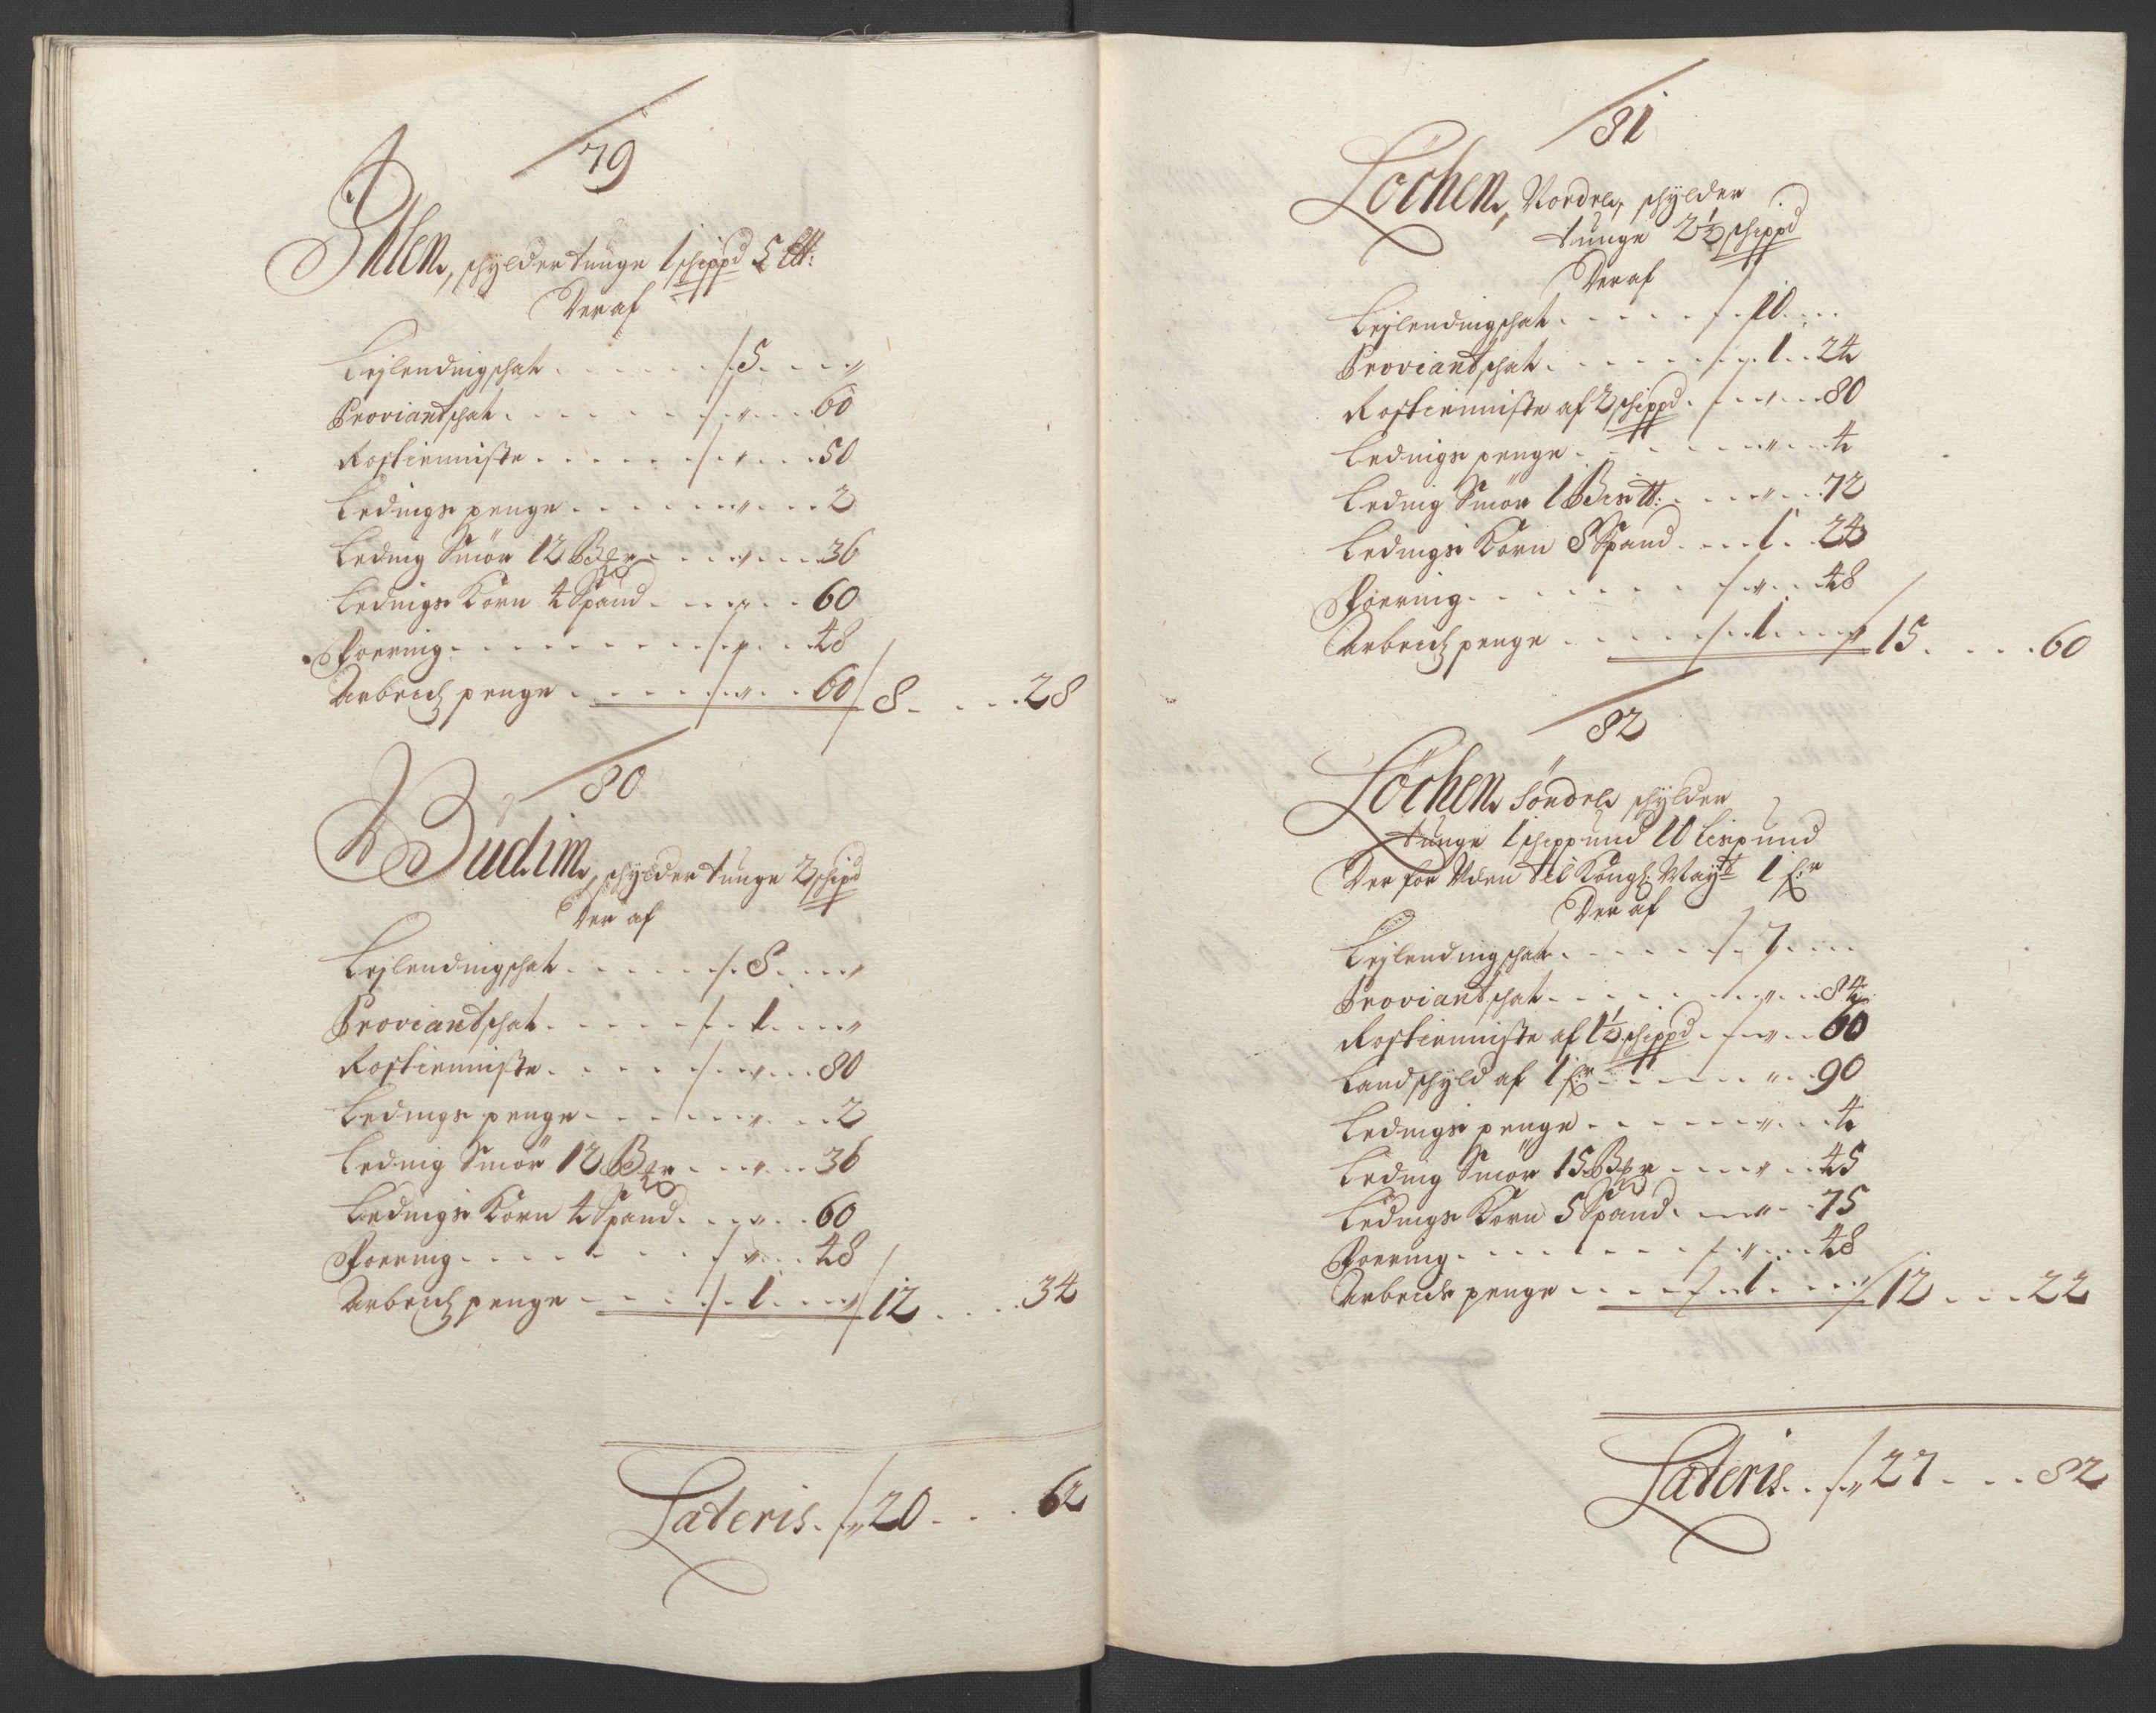 79
Ihlen, schylder tunge 1 schippd 5 Ltt:
Der af
Lejlendingschat . . . . . . . 5 . . . "
Proviantschat . . . . . . . " . . . 60
Rostieniste . . . . . . . " . . . 50
Ledings penge . . . . . . . " . . . 2
Leding Smör 12 Bter . . . " . . . 36
Ledings Korn 4 Spand . . . " . . . 60
Foering . . . . . . . " . . . 48
Arbeids penge . . . . . . . " . . . 60 / 8 . . . . 28
80
Budim, schylder tunge 2 schipd
Der af
Lejlendingschat . . . . . . . 8 . . . "
Proviantschat . . . . . . . 1 . . . "
Rostieniste . . . . . . . " . . . 80
Ledings penge . . . . . . . " . . . 2
Leding Smör 12 Bter . . . " . . . 36
Ledings Korn 4 Spand . . . " . . . 60
Foering . . . . . . . " . . . 48
Arbeids penge . . . . . . . 1 . . . " / 12 . . . . 34
Lateris . . 20 . . . 62
81
Löchen, Nordre, schylder
tunge 2½ schippd
Der af
Lejlendingschat . . . . . . . 10 . . .
Proviantschat . . . . . . . 1 . . 24
Rostieniste af 2 schippd . . " . . . 80
Ledings penge . . . . . . . " . . . 4
Leding Smör 1 Bis tt: . . . " . . . 72
Ledings Korn 8 Spand . . . 1 . . 24
Foering . . . . . . . " . . . 48
Arbeids penge . . . . . . . 1 . . . " / 15 . . . . 60
82
Löchen Söndre schylder
tunge 1 schippund 10 Lispund
Der for Uden til Kongl: Maytt 1 Ör
Der af
Lejlendingschat . . . . . . . 7 . . .
Proviantschat . . . . . . . " . . . 84
Rostieniste af 1½ schippd . . " . . 60
Landschyld af 1 Ör . . . . . " . . 90
Ledings penge . . . . . . . " . . . 4
Leding Smör 15 Bter . . . " . . 45
Ledings Korn 5 Spand . . . " . . 75
Foering . . . . . . . " . . . 48
Arbeids penge . . . . . . . 1 . . . " / 12 . . . 22
Lateris . . 27 . . . 82